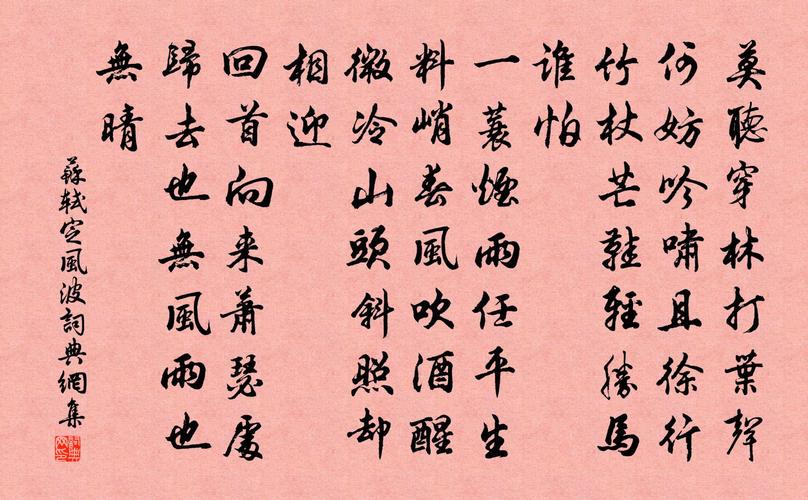 莫聽穿林打葉聲
何妨吟嘯且徐行
竹杖芒鞋輕勝馬
誰怕
一蓑煙雨任平生
料峭春風吹酒醒
微冷山頭斜照却
相迎
回首向来蕭瑟處
歸去也無風雨也
無晴
蘇軾定風波詞典網集